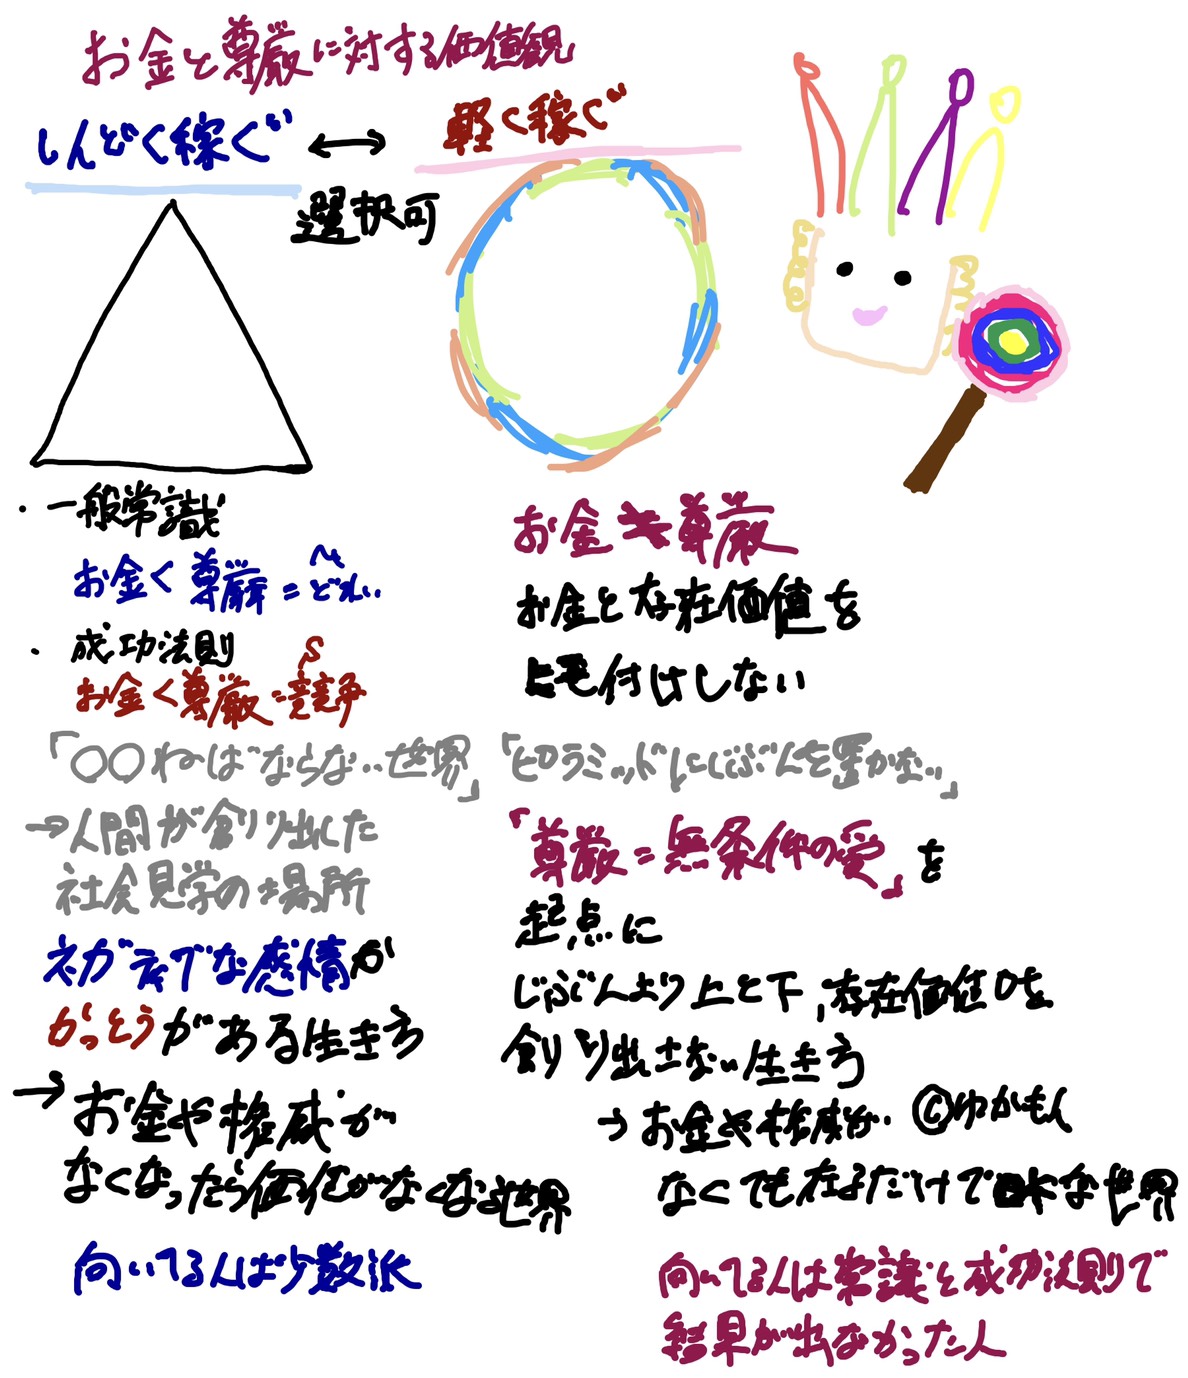 お金と尊厳に対する価値観
しんどく稼ぐ
軽く稼ぐ
選択可
・一般常識
お金く尊厳=どれい
・成功法則
S
お金く尊厳=競争
「〇〇ねばならない世界」
→人間が創り出した
社会見学の場所
ネガティブな感情か
かっとうがある生き方
→お金や権威が
なくなったら価値がなくなる世界
向いてる人は少数派
お金≠尊厳
お金と存在価値を
ヒモ付けしない
「ピラミッドにじぶんを置かない」
「尊厳=無条件の愛」を
起点に
じぶんより上と下,存在価値0を
創り出さない生き方
→お金や権威が
©ゆかもん
なくても在るだけでOKな世界
向いてる人は常識と成功法則で
結果が出なかった人